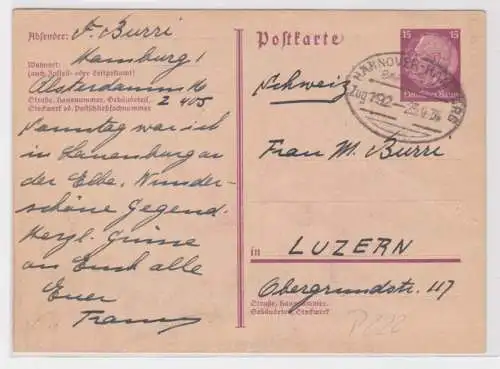 Absender: F. Burri
Wohnort: Hamburg 1
(auch Zustell- oder Leitpostamt)
Alsterdamm 16
Z 405
Straße, Hausnummer, Gebäudeteil,
Stockwerk od. Postschließfachnummer
Sonntag war ich
in Lauenburg an
der Elbe. Wunder-
schöne Gegend.
Herzl. Grüsse
an Euch alle
Euer
Franz
Postkarte
15 15
Deutsches Reich
HANNOVER
Zug 1592
Schweiz
Frau M. Burri
in LUZERN
Obergrundstr. 47
Straße, Hausnummer,
Gebäudeteil, Stockwerk
P 222